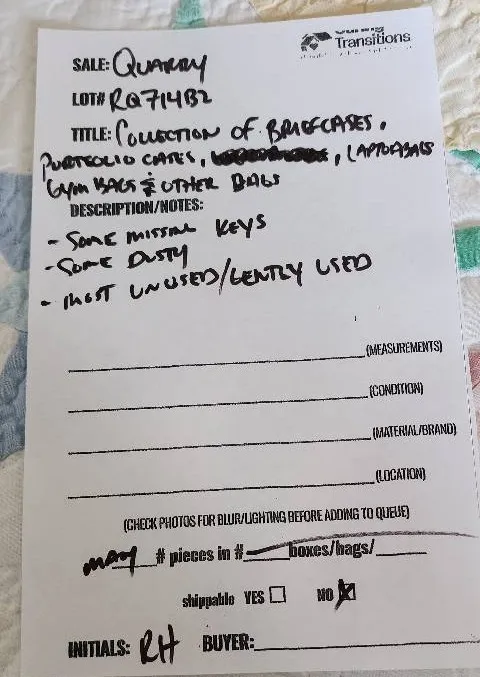 Transitions
SALE: QUARRY
LOT# RQ714B2
TITLE: COLLECTION OF BRIEFCASES,
PORTFOLIO CASES, , LAPTOP BAGS
GYM BAGS & OTHER BAGS
DESCRIPTION/NOTES:
- SOME MISSING KEYS
- SOME DUSTY
- MOST UNUSED/GENTLY USED
(MEASUREMENTS)
(CONDITION)
(MATERIAL/BRAND)
(LOCATION)
(CHECK PHOTOS FOR BLUR/LIGHTING BEFORE ADDING TO QUEUE)
MANY # pieces in # boxes/bags/
shippable YES NO
INITIALS: RH BUYER: